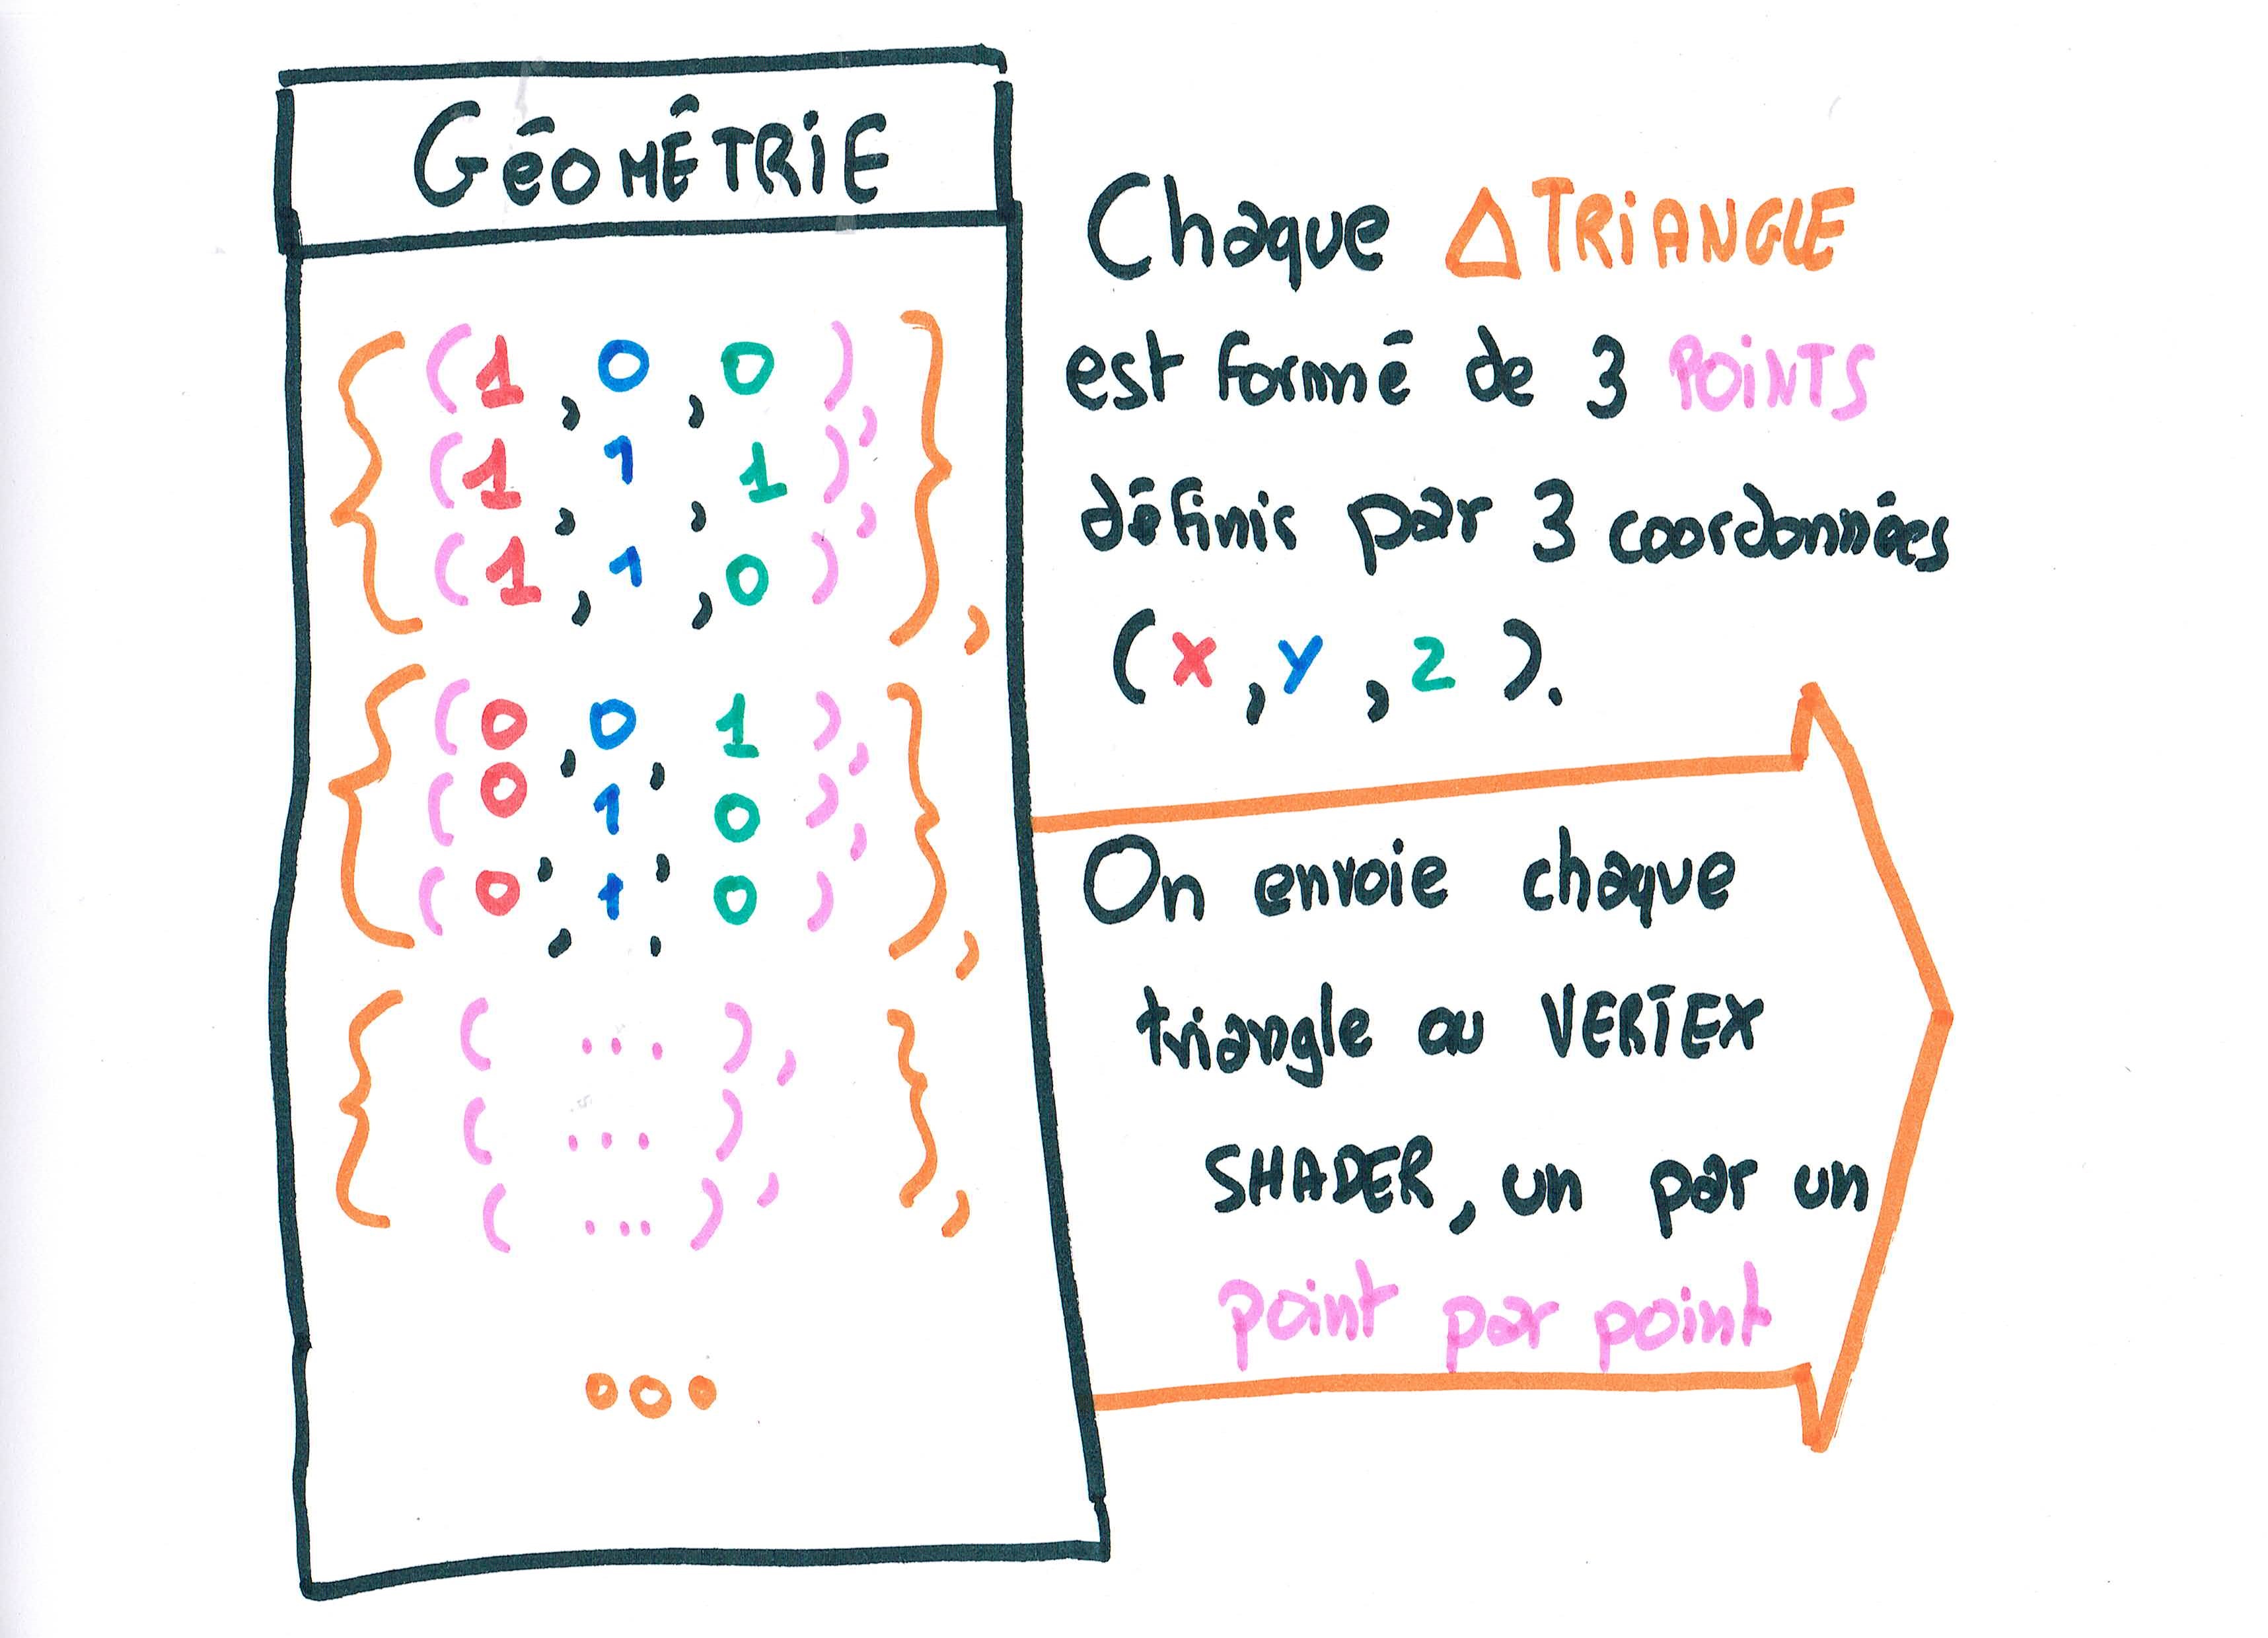 GéOMÉTRiE
{ (1, 0, 0),
(1, 1, 1),
(1, 1, 0) },
{ (0, 0, 1),
(0, 1, 0),
(0, 1, 0) },
{ ( ... ),
( ... ),
( ... ), },
ooo
Chaque △ TRiANGLE
est formé de 3 POiNTS
définis par 3 coordonnées
(x, y, z).
On envoie chaque
triangle au VERTEX
SHADER, un par un
point par point